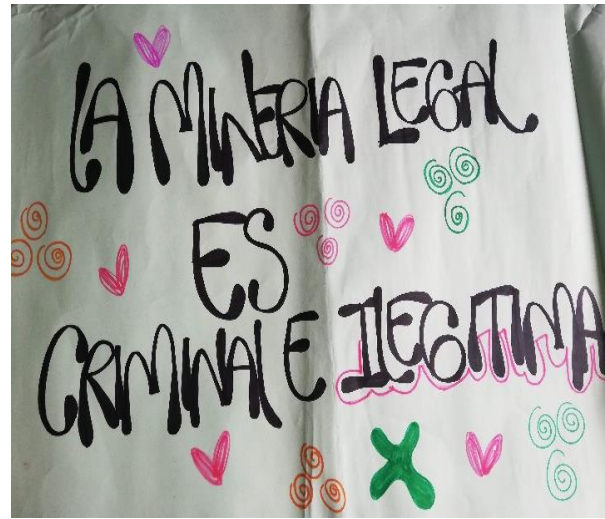 LA MINERIA LEGAL
ES
CRIMINAL E ILEGITIMA